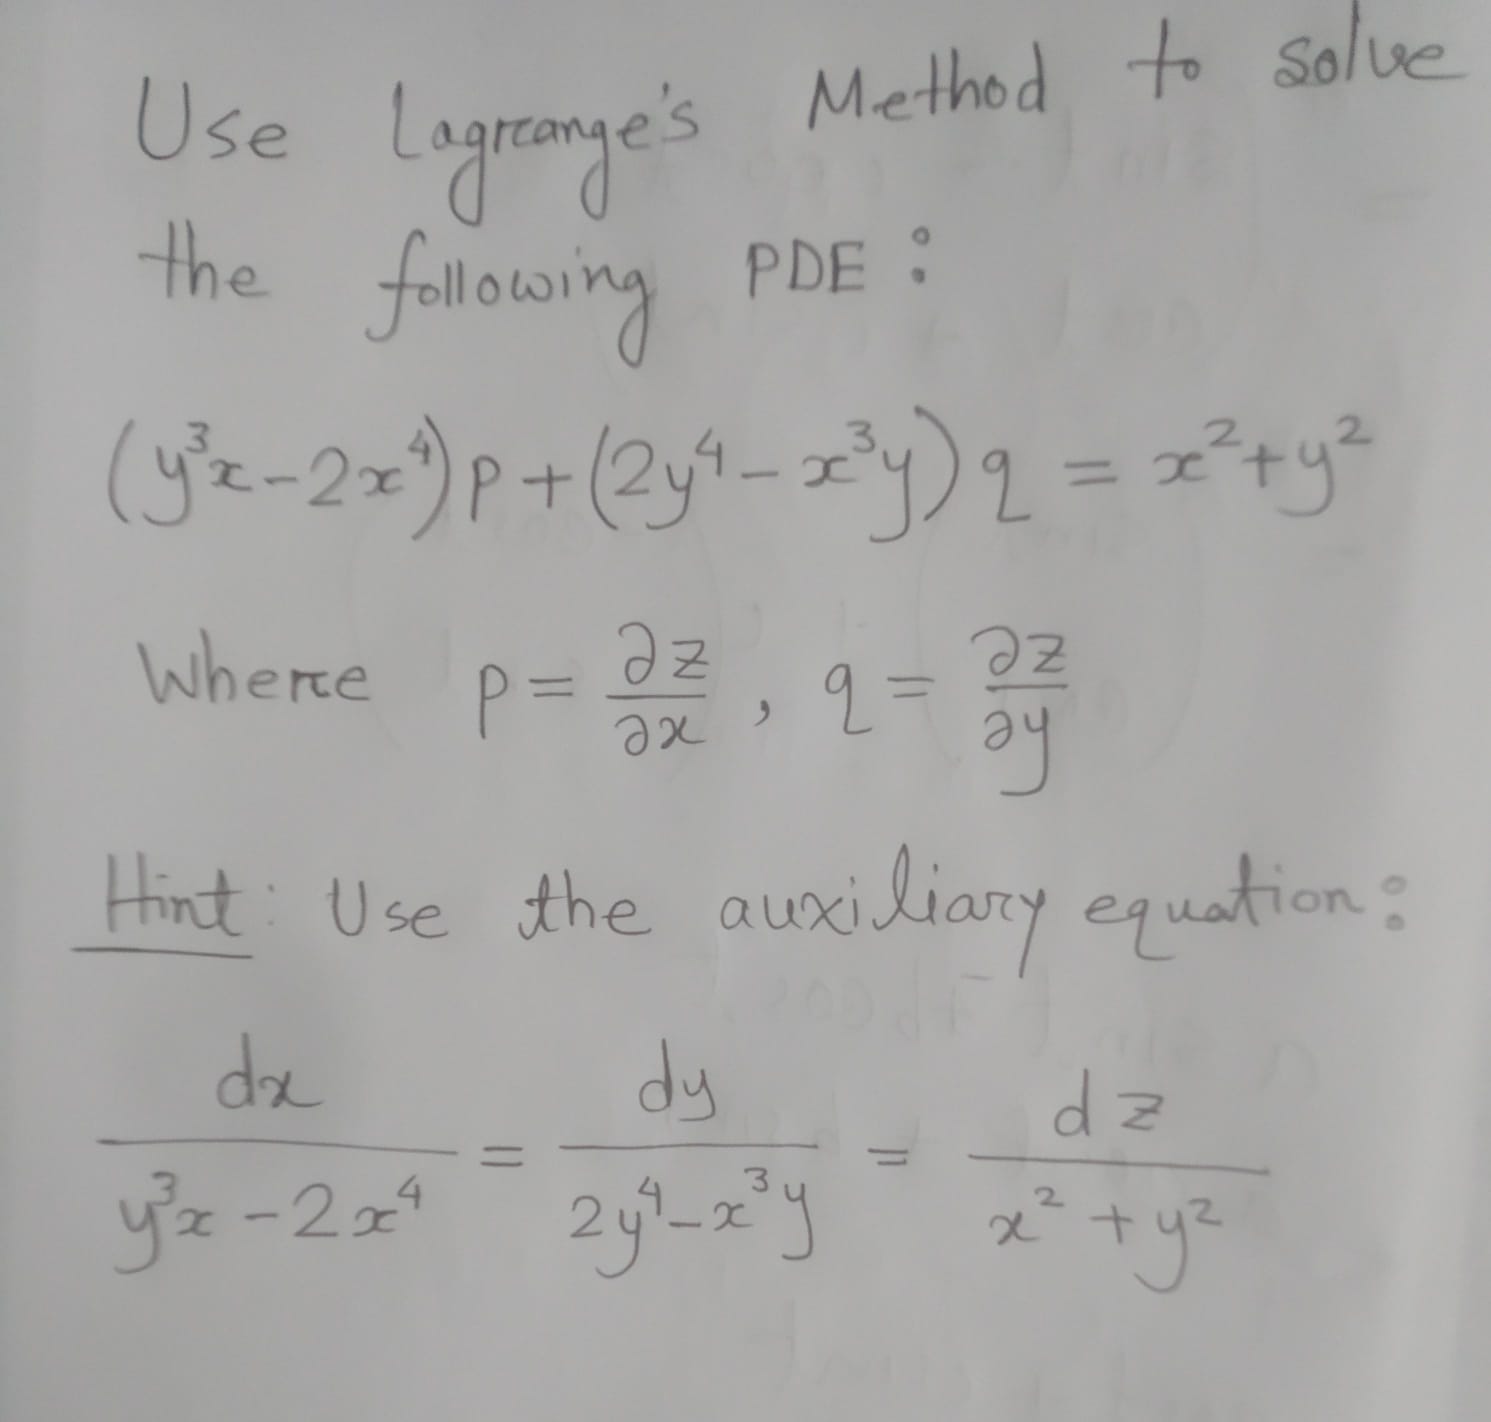 Use Lagrange's Method to solve
the following PDE:
(y³x-2x⁴)p+(2y⁴-x³y)q = x²+y²
Where p = ∂z/∂x , q = ∂z/∂y
Hint: Use the auxiliary equation:
dx/(y³x-2x⁴) = dy/(2y⁴-x³y) = dz/(x²+y²)